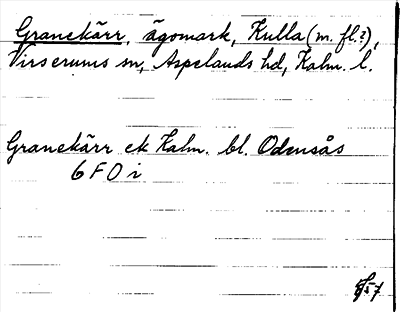 Granekärr, ägomark, Kulla (m. fl.?),
Virserums sn, Aspelands hd, Kalm. l.
Granekärr ek Kalm. bl. Odensås
6 F 0 i